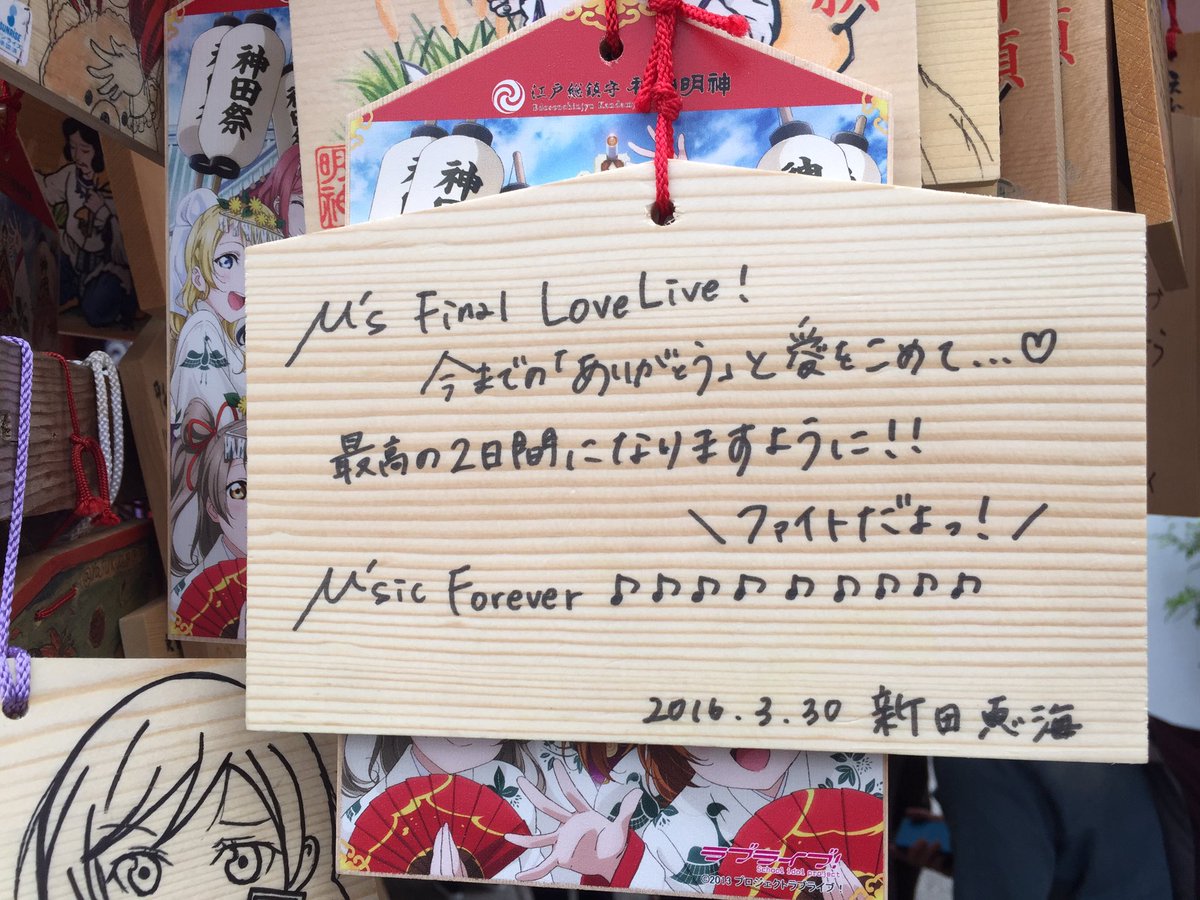 神田祭
江戸総鎮守
明神
神
明神
μ's Final LoveLive!
今までの「ありがとう」と愛をこめて...♡
最高の2日間になりますように!!
\ファイトだよっ!/
μ'sic Forever ♪♪♪♪♪♪♪♪♪
2016.3.30 新田恵海
ラブライブ!
School idol project
©2013 プロジェクトラブライブ!